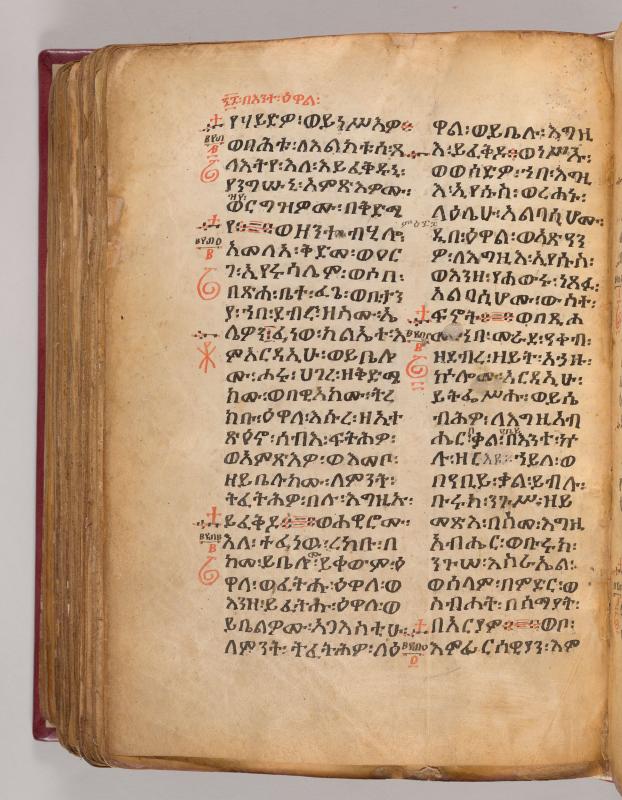 በእንተ፡ዕዋል፡
የሃይድዎ፡ወይንሥእዎ።
ወበሕቱ፡ለእልክቱ፡ጸ
ላእትየ፡እለ፡ኢይፈቅዱኒ፡
ያንግሡኒ፡አምጽእዎሙ፡
ወርግዝዎሙ፡በቅድሜ
የ።ወዘንተ፡ብሂሎ፡
አመለአ፡ቅድመ፡ወዐር
ገ፡ኢየሩሳሌም፡ወሶበ፡
በጽሐ፡ቤተ፡ፈጌ፡ወቢታን
ያ፡ኀበ፡ደብረ፡ዘስሙ፡ኤ
ሌዎን፡ፈነወ፡ክልኤተ፡እ
ምአርዳኢሁ፡ወይቤሎ
ሙ፡ሑሩ፡ሀገረ፡ዘቅድሜ
ክሙ፡ወበዊአክሙ፡ትረ
ክቡ፡ዕዋለ፡እሱረ፡ዘኢተ
ጽዕኖ፡ሰብእ፡ፍትሕዎ፡
ወአምጽእዎ፡ወእመቦ፡
ዘይቤለክሙ፡ለምንት፡
ትፈትሕዎ፡በሉ፡እግዚኡ፡
ይፈቅዶ።ወሐዊሮሙ፡
እለ፡ተፈነዉ፡ረከቡ፡በ
ከመ፡ይቤሎሙ፡ይቀውም፡ዕ
ዋለ፡ወፈትሑ፡ዕዋለ፡ወ
እንዘ፡ይፈትሑ፡ዕዋለ፡ወ
ይቤልዎሙ፡አጋእስቲሁ፡
ለምንት፡ትፈትሕዎ፡ለዕ
ዋል፡ወይቤሉ፡እግዚ
እ፡ይፈቅዶ።ወነሥኡ፡
ወወሰድዎ፡ኀበ፡እግዚ
እ፡ኢየሱስ፡ወረሐኑ፡
ለዕሌሁ፡አልባሲሆሙ፡
ዲበ፡ዕዋል፡ወአጽዓን
ዎ፡ለእግዚእ፡ኢየሱስ፡
ወእንዘ፡የሐውሩ፡ነጸፉ፡
አልባሲሆሙ፡ውስተ፡
ፍኖት።ወበጺሖ
ሙ፡ኀበ፡ሙራደ፡ዓቀብ፡
ዘደብረ፡ዘይት፡አኀዙ፡
ኵሎሙ፡አርዳኢሁ፡
ይትፌሥሑ፡ወይሴ
ብሕዎ፡ለእግዚአብ
ሔር፡ቃል፡በእንተ፡ኵ
ሉ፡ዘርእዩ፡ኀይለ፡ወ
በዓቢይ፡ቃል፡ይብሉ፡
ቡሩክ፡ንጉሥ፡ዘይ
መጽእ፡በስመ፡እግዚ
አብሔር፡ወቡሩክ፡
ንጉሠ፡እስራኤል፡
ወሰላም፡በምድር፡ወ
ስብሐት፡በሰማያት፡
በአርያም።ወቦ፡
እምፈርሳዊያን፡እም